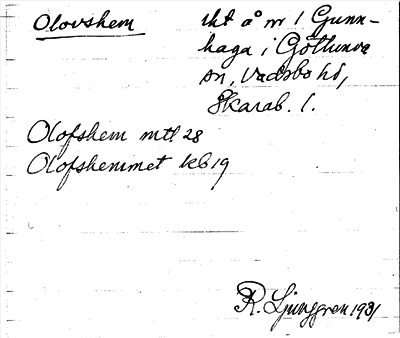 Olovshem
tht å nr 1 Gunn-
haga i Götlunda
sn, Vadsbo hd,
Skarab. l.
Olofshem mtl 28
Olofshemmet kb 19
R. Ljunggren 1931